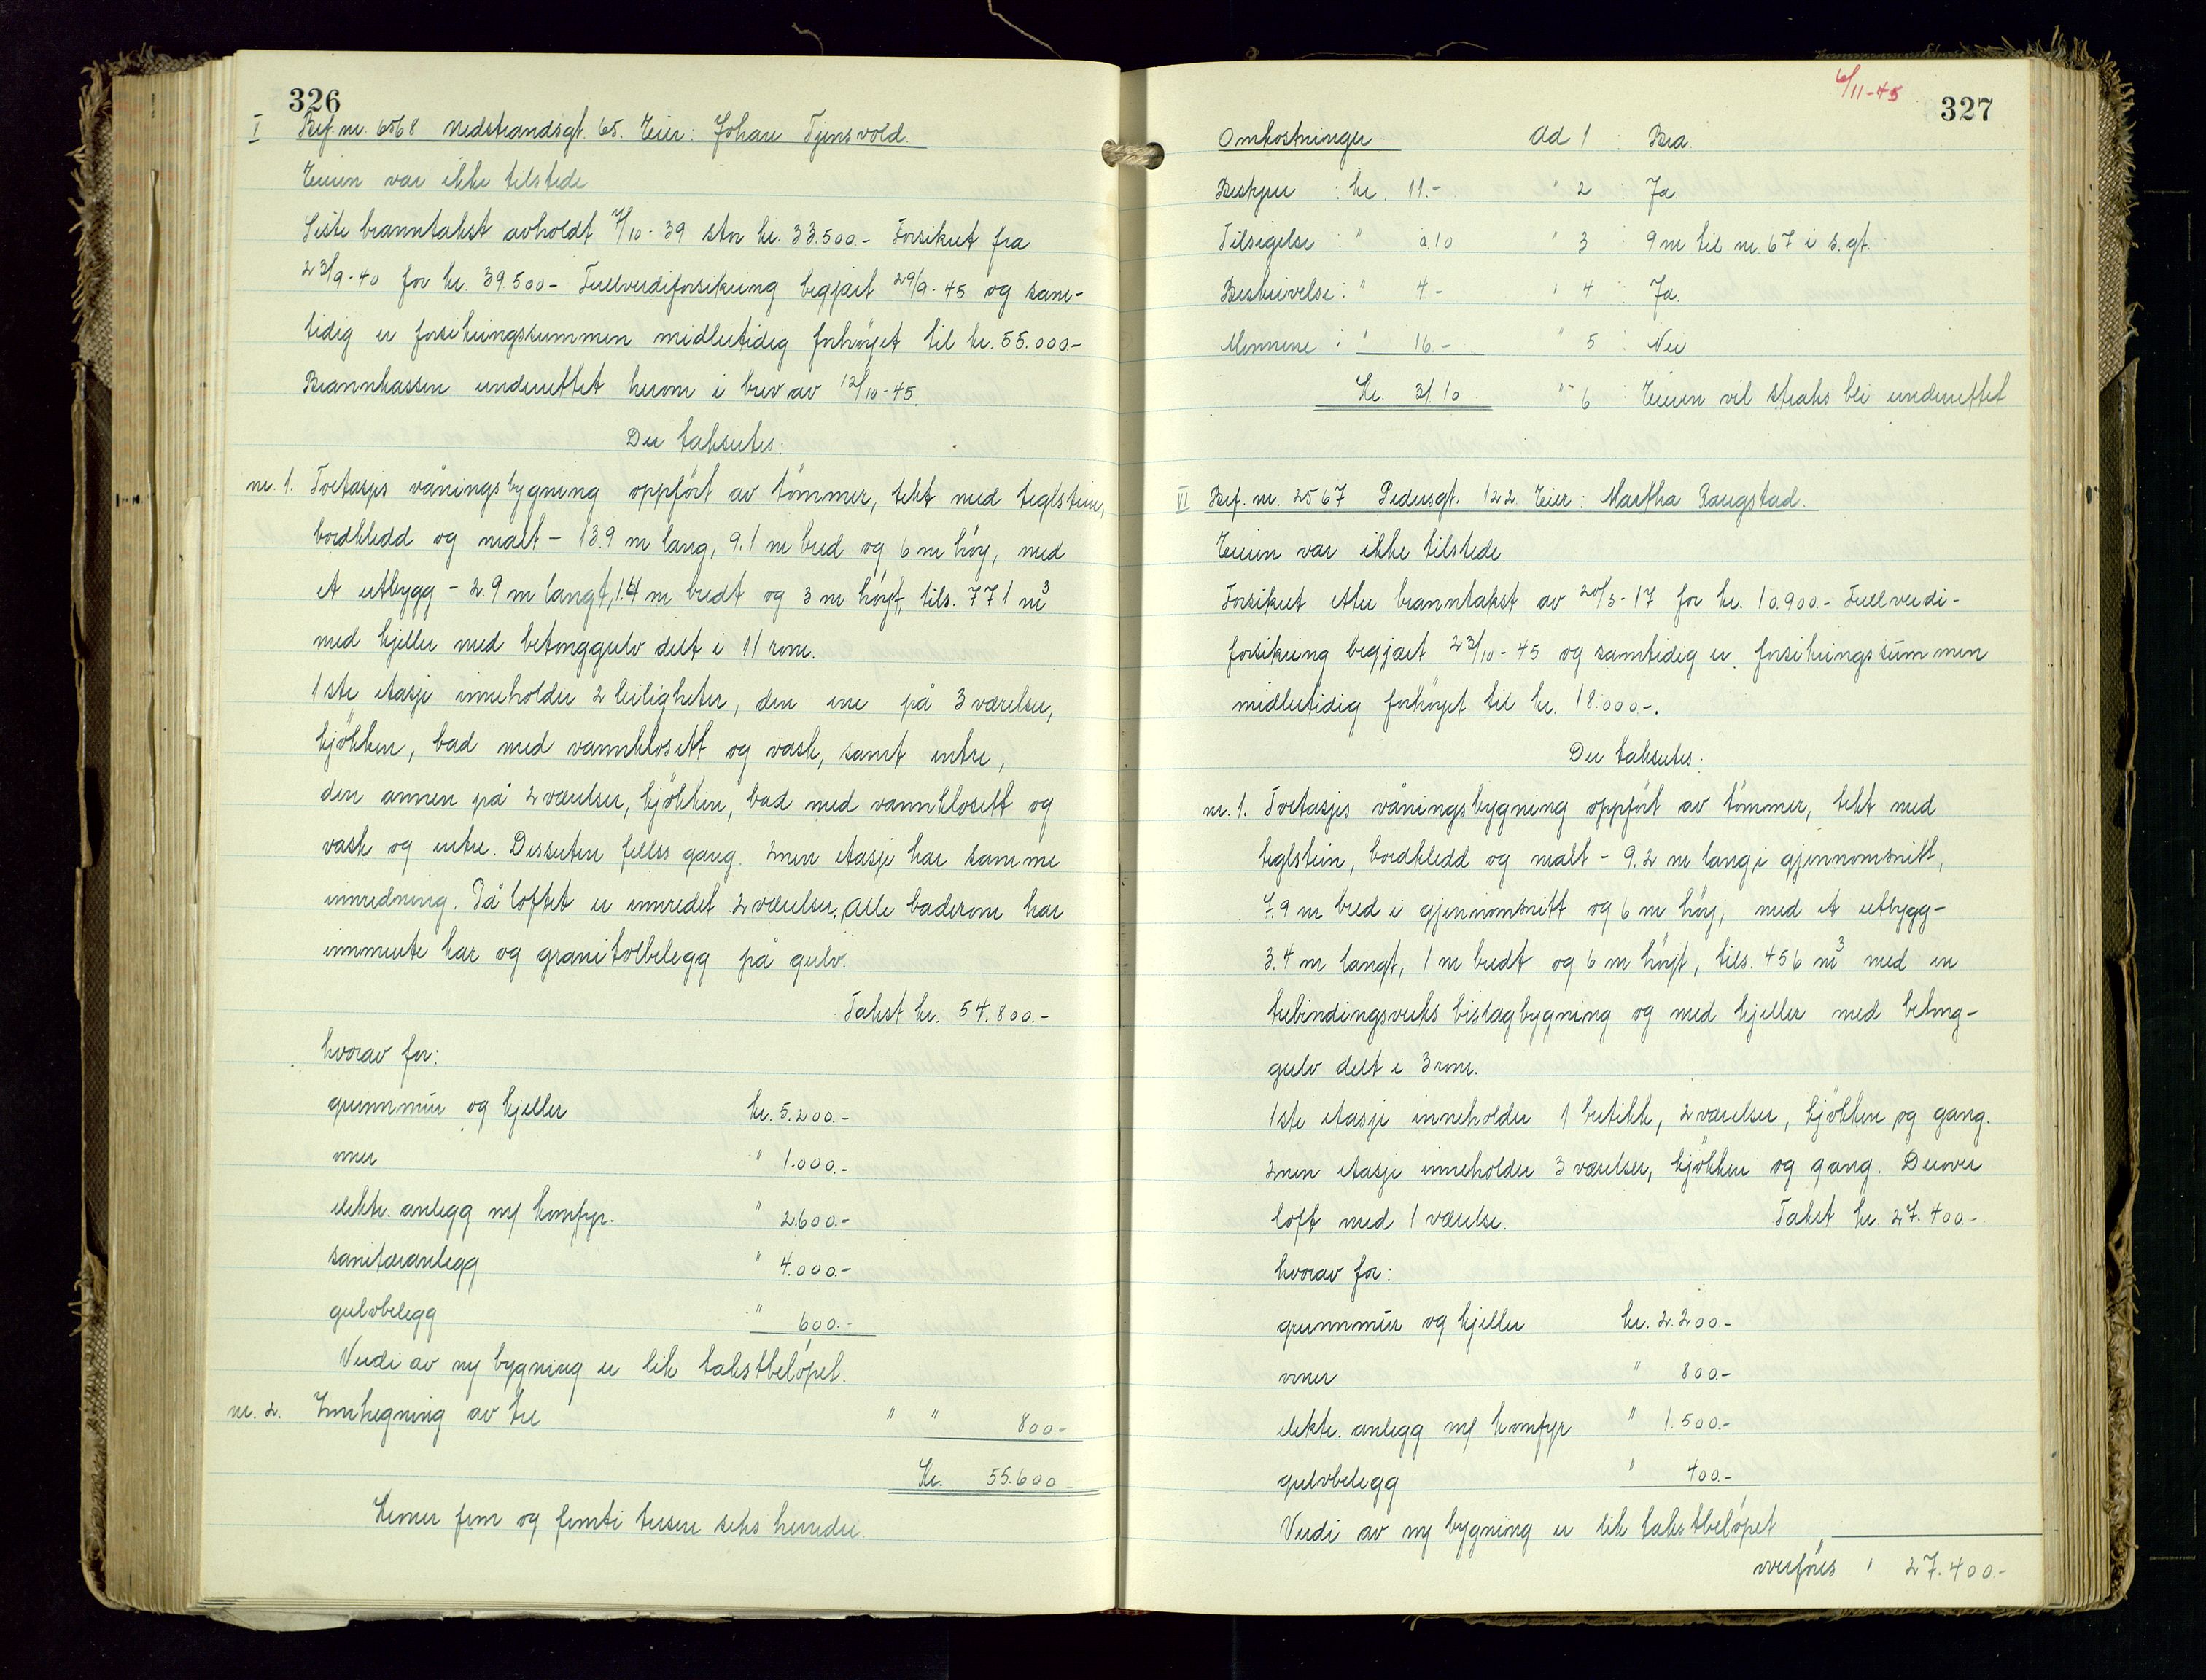 326
I Brf. nr. 6568 Nedstrandsgt. 65. Eier: Johan Tjensvold.
Eieren var ikke tilstede
Siste branntakst avholdt 7/10-39 stor kr. 33.500.- Forsikret fra
23/9-40 for kr. 39.500- Fullverdiforsikring begjært 29/9-45 og sam-
tidig er forsikringssummen midlertidig forhöyet til kr. 55.000-
Brannkassen underrettet herom i brev av 12/10-45.
Der takseres:
nr. 1. Toetasjes våningsbygning oppfört av tömmer, tekt med teglstein,
bordkledd og malt - 13.9 m lang, 9.1 m bred og 6 m höy, med
et utbygg - 2.9 m langt, 1.4 m bredt og 3 m höyt, tils. 771 m³
med kjeller med betonggulv delt i 11 rom.
1ste etasje inneholder 2 leiligheter, den ene på 3 værelser,
kjökken, bad med vannklosett og vask, samt entre,
den annen på 2 værelser, kjökken, bad med vannklosett og
vask og entre. Dessuten felles gang. 2nen etasje har samme
innredning. På loftet er innredet 2 værelser. Alle baderom har
innmurte kar og granitolbelegg på gulv.
Takst kr. 54.800.-
hvorav for:
grunnmur og kjeller kr. 5.200.-
ovner " 1.000.-
elektr. anlegg m/ komfyr. " 2.600.-
sanitæranlegg " 4.000.-
gulvbelegg " 600.-
Verdi av ny bygning er lik takstbelöpet.
nr. 2. Innhegning av tre " " 800.-
Kr. 55.600.-
Kroner fem og femti tusen seks hundre.
6/11-45
327
Omkostninger Ad 1 : Bra.
Beskjæר : kr. 11.- " 2 : Ja.
Tilsigelse : " 0.10 " 3 : 9 m til nr. 67 i s. gt.
Beskrivelse : " 4- " 4 : Ja.
Mennene : " 16.- " 5 : Nei
Kr. 31.10 " 6 : Eieren vil straks bli underrettet
VI Brf. nr. 2567 Pedersgt. 122 Eier: Martha Raugstad.
Eieren var ikke tilstede.
Forsikret etter branntakst av 20/3-17 for kr. 10.900.- Fullverdi-
forsikring begjært 23/10-45 og samtidig er forsikringssummen
midlertidig forhöyet til kr. 18.000-.
Der takseres:
nr. 1. Toetasjes våningsbygning oppfört av tömmer, tekt med
teglstein, bordkledd og malt - 9.2 m lang i gjennomsnitt,
7.9 m bred i gjennomsnitt og 6 m höy, med et utbygg-
3.4 m langt, 1 m bredt og 6 m höyt, tils. 456 m³ med en
trebindingsverks bislagbygning og med kjeller med betong-
gulv delt i 3 rom.
1ste etasje inneholder 1 butikk, 2 værelser, kjökken og gang.
2nen etasje inneholder 3 værelser, kjökken og gang. Derover
loft med 1 værelse. Takst kr. 27.400-
hvorav for:
grunnmur og kjeller kr. 2.200-
ovner " 800-
elektr. anlegg m/ komfyr " 1.500.-
gulvbelegg " 400.-
Verdi av ny bygning er lik takstbelöpet
overföres " 27.400.-